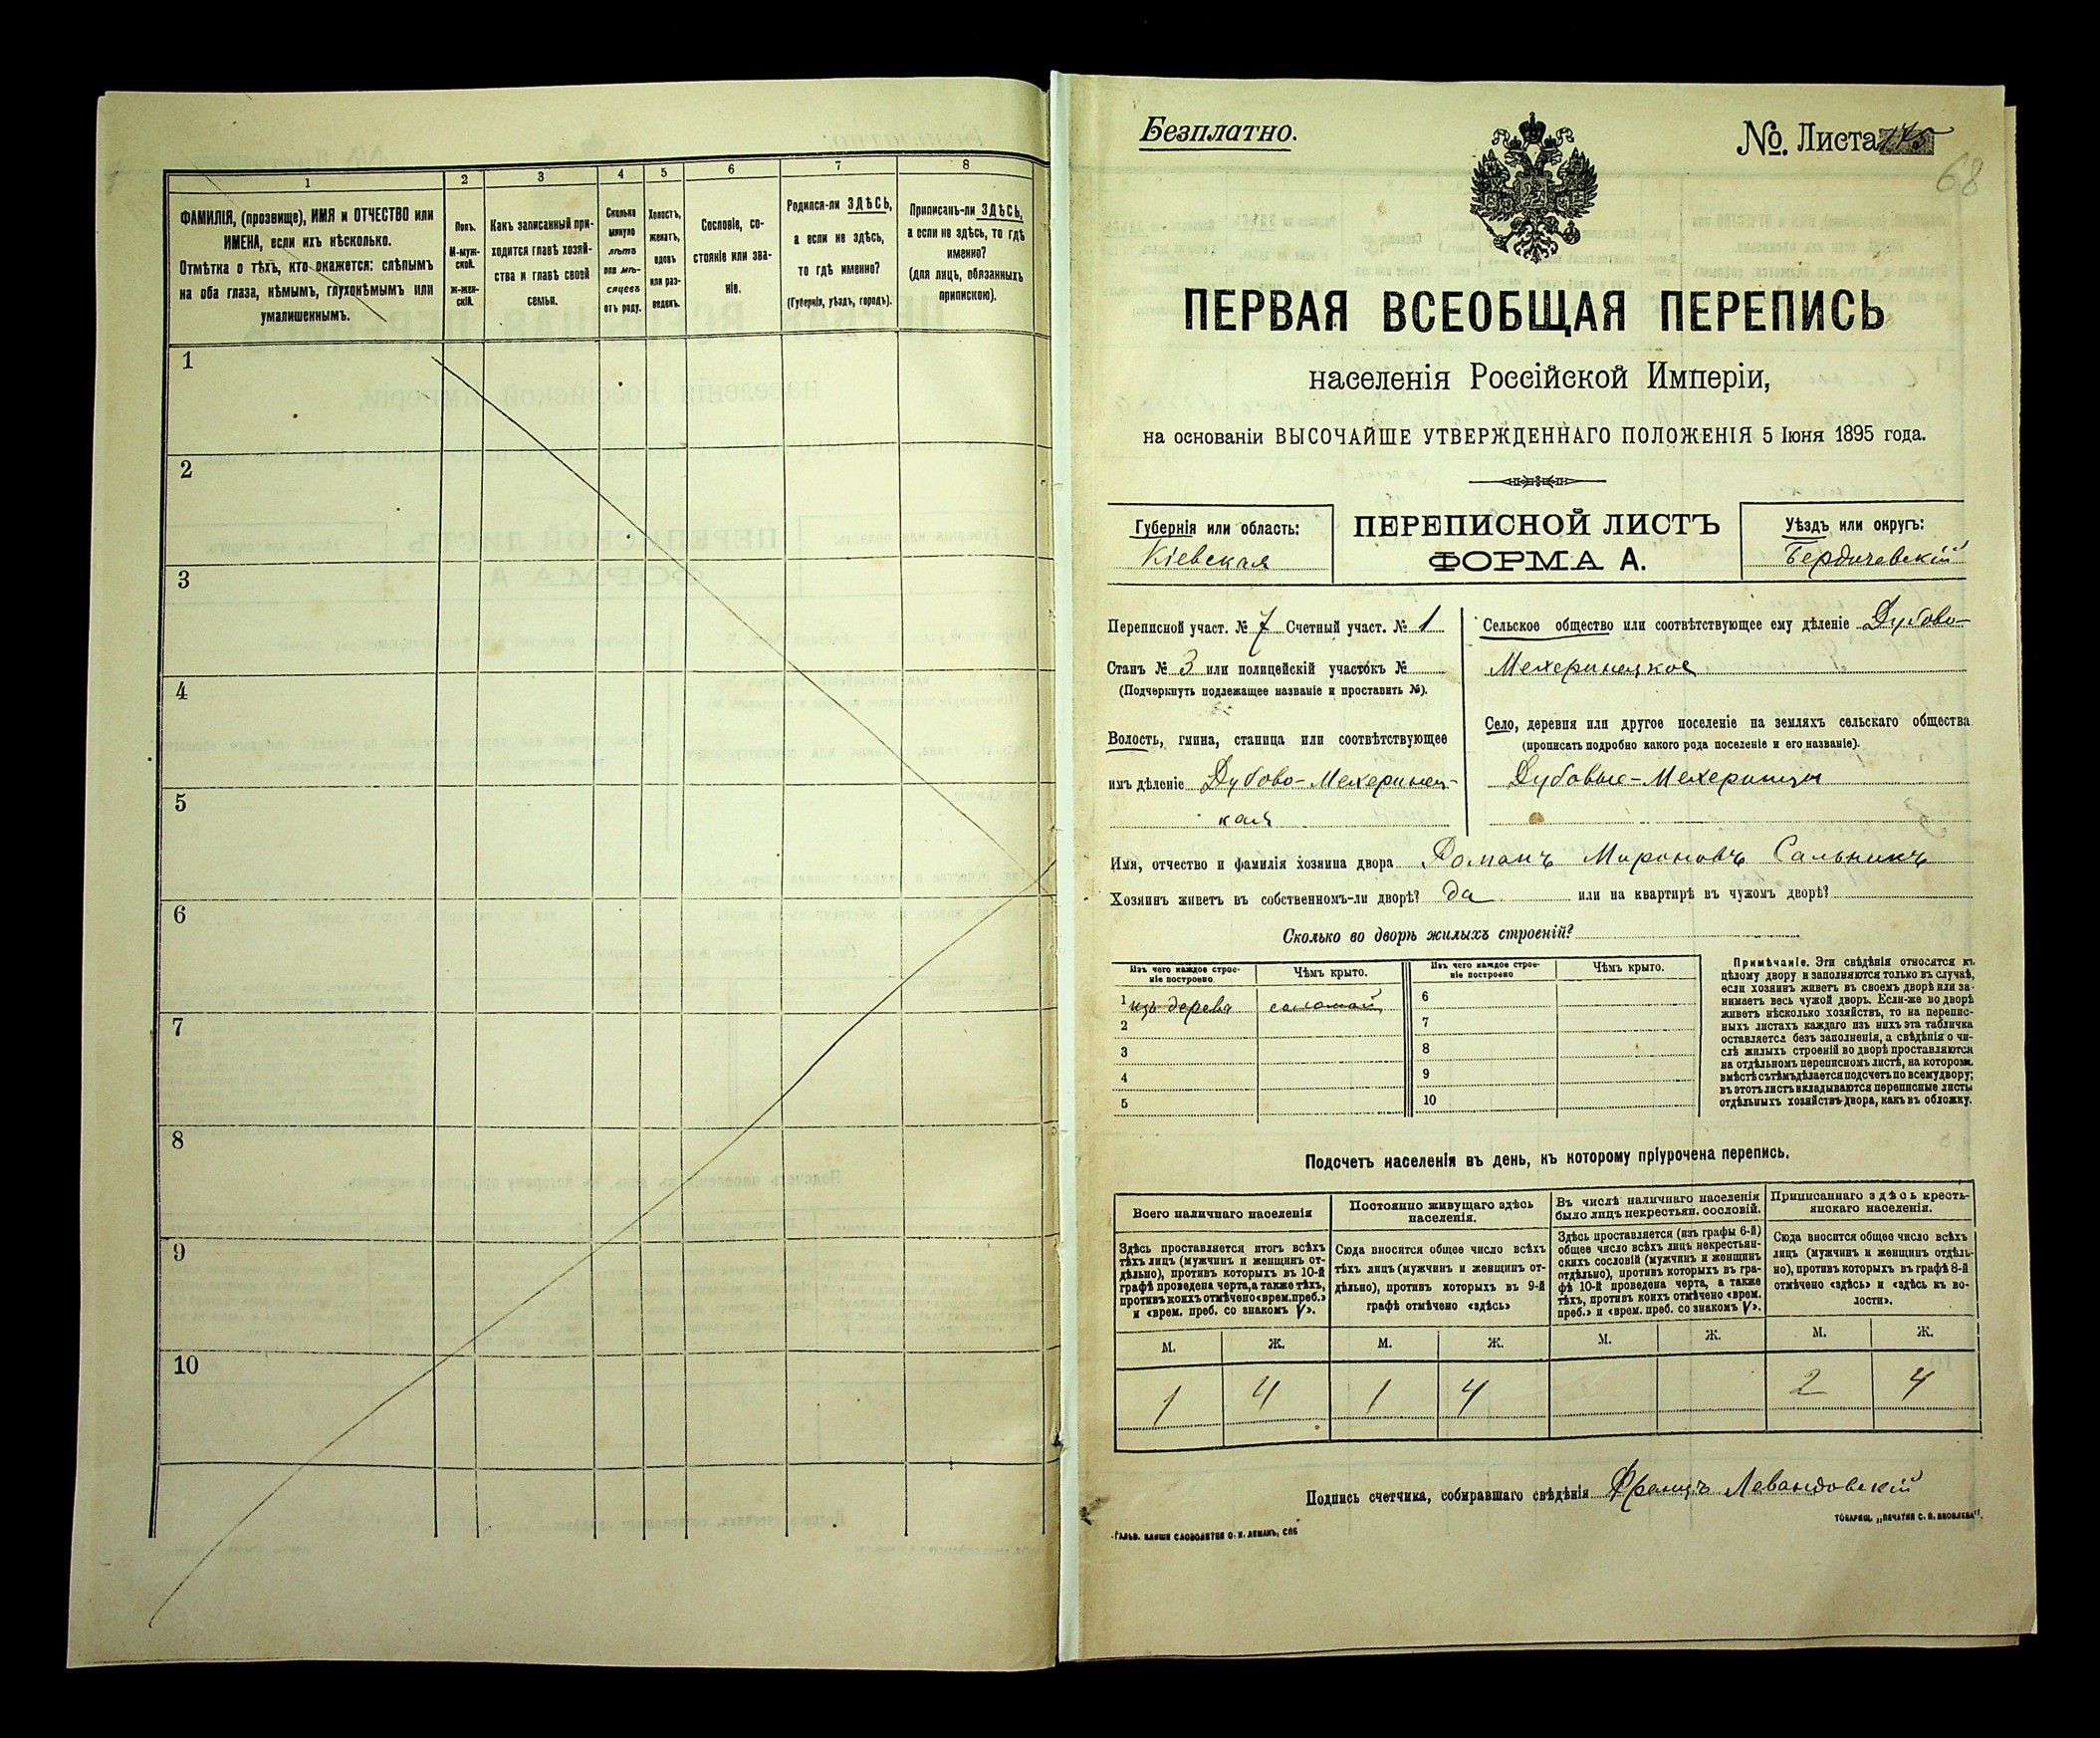 1
2
3
4
5
6
7
8
ФАМИЛІЯ, (прозвище), ИМЯ и ОТЧЕСТВО или
ИМЕНА, если ихъ нѣсколько.
Отмѣтка о тѣхъ, кто окажется: слѣпымъ
на оба глаза, нѣмымъ, глухонѣмымъ или
умалишеннымъ.
Полъ.
М-муж-
ской.
ж-жен-
скій.
Какъ записанный при-
ходится главѣ хозяй-
ства и главѣ своей
семьи.
Сколько
минуло
лѣтъ
или мѣ-
сяцевъ
отъ роду.
Холостъ,
женатъ,
вдовъ
или раз-
веденъ.
Сословіе, со-
стояніе или зва-
ніе.
Родился-ли ЗДѢСЬ,
а если не здѣсь,
то гдѣ именно?
(Губернія, уѣздъ, городъ).
Приписанъ-ли ЗДѢСЬ,
а если не здѣсь, то гдѣ
именно?
(для лицъ, обязанныхъ
припискою).
1
2
3
4
5
6
7
8
9
10
Безплатно.
№. Листа 175
68
ПЕРВАЯ ВСЕОБЩАЯ ПЕРЕПИСЬ
населенія Россійской Имперіи,
на основаніи ВЫСОЧАЙШЕ УТВЕРЖДЕННАГО ПОЛОЖЕНІЯ 5 Іюня 1895 года.
Губернія или область:
Кіевская
ПЕРЕПИСНОЙ ЛИСТЪ
ФОРМА А.
Уѣздъ или округъ:
Бердичевскій
Переписной участ. № 7 Счетный участ. № 1
Станъ № 3 или полицейскій участокъ №
(Подчеркнуть подлежащее названіе и проставить №).
Волость, гмина, станица или соотвѣтствующее
имъ дѣленіе Дубово-Мехеринец-
кая
Сельское общество или соотвѣтствующее ему дѣленіе Дубово-
Мехеринецкое
Село, деревня или другое поселеніе на земляхъ сельскаго общества
(прописать подробно какого рода поселеніе и его названіе).
Дубовые-Мехеринцы
Имя, отчество и фамилія хозяина двора Романъ Мироновъ Сальникъ
Хозяинъ живетъ въ собственномъ-ли дворѣ? да или на квартирѣ въ чужомъ дворѣ?
Сколько во дворѣ жилыхъ строеній?
Изъ чего каждое строе-
ніе построено
Чѣмъ крыто.
Изъ чего каждое строе-
ніе построено
Чѣмъ крыто.
1 изъ дерева соломой
2
3
4
5
6
7
8
9
10
Примѣчаніе. Эти свѣдѣнія относятся къ
цѣлому двору и заполняются только въ случаѣ,
если хозяинъ живетъ въ своемъ дворѣ или за-
нимаетъ весь чужой дворъ. Если-же во дворѣ
живетъ нѣсколько хозяйствъ, то на перепис-
ныхъ листахъ каждаго изъ нихъ эта табличка
оставляется безъ заполненія, а свѣдѣнія о чи-
слѣ жилыхъ строеній во дворѣ проставляются
на отдѣльномъ переписномъ листѣ, на которомъ
вмѣстѣ съ тѣмъ дѣлается подсчетъ по всему двору;
въ этотъ листъ вкладываются переписные листы
отдѣльныхъ хозяйствъ двора, какъ въ обложку.
Подсчетъ населенія въ день, къ которому пріурочена перепись.
Всего наличнаго населенія
Здѣсь проставляется итогъ всѣхъ
тѣхъ лицъ (мужчинъ и женщинъ от-
дѣльно), противъ которыхъ въ 10-й
графѣ проведена черта, а также тѣхъ,
противъ коихъ отмѣчено «врем. преб.»
и «врем. преб. со знакомъ V».
Постоянно живущаго здѣсь
населенія.
Сюда вносится общее число всѣхъ
тѣхъ лицъ (мужчинъ и женщинъ от-
дѣльно), противъ которыхъ въ 9-й
графѣ отмѣчено «здѣсь»
Въ числѣ наличнаго населенія
было лицъ некрестьян. сословій.
Здѣсь проставляется (изъ графы 6-й)
общее число всѣхъ лицъ некрестьян-
скихъ сословій (мужчинъ и женщинъ
отдѣльно), противъ которыхъ въ гра-
фѣ 10-й проведена черта, а также
тѣхъ, противъ коихъ отмѣчено «врем.
преб.» и «врем. преб. со знакомъ V».
Приписаннаго здѣсь кресть-
янскаго населенія.
Сюда вносится общее число всѣхъ
лицъ (мужчинъ и женщинъ отдѣль-
но), противъ которыхъ въ графѣ 8-й
отмѣчено «здѣсь» и «здѣсь къ во-
лости».
М. Ж. М. Ж. М. Ж. М. Ж.
1 4 1 4 2 4
Подпись счетчика, собиравшаго свѣдѣнія Францъ Левандовскій
ГАЛЬВ. КЛИШЕ СЛОВОЛИТНИ О. И. ЛЕМАНЪ, СПБ
ТОВАРИЩ. „ПЕЧАТНЯ С. П. ЯКОВЛЕВА".